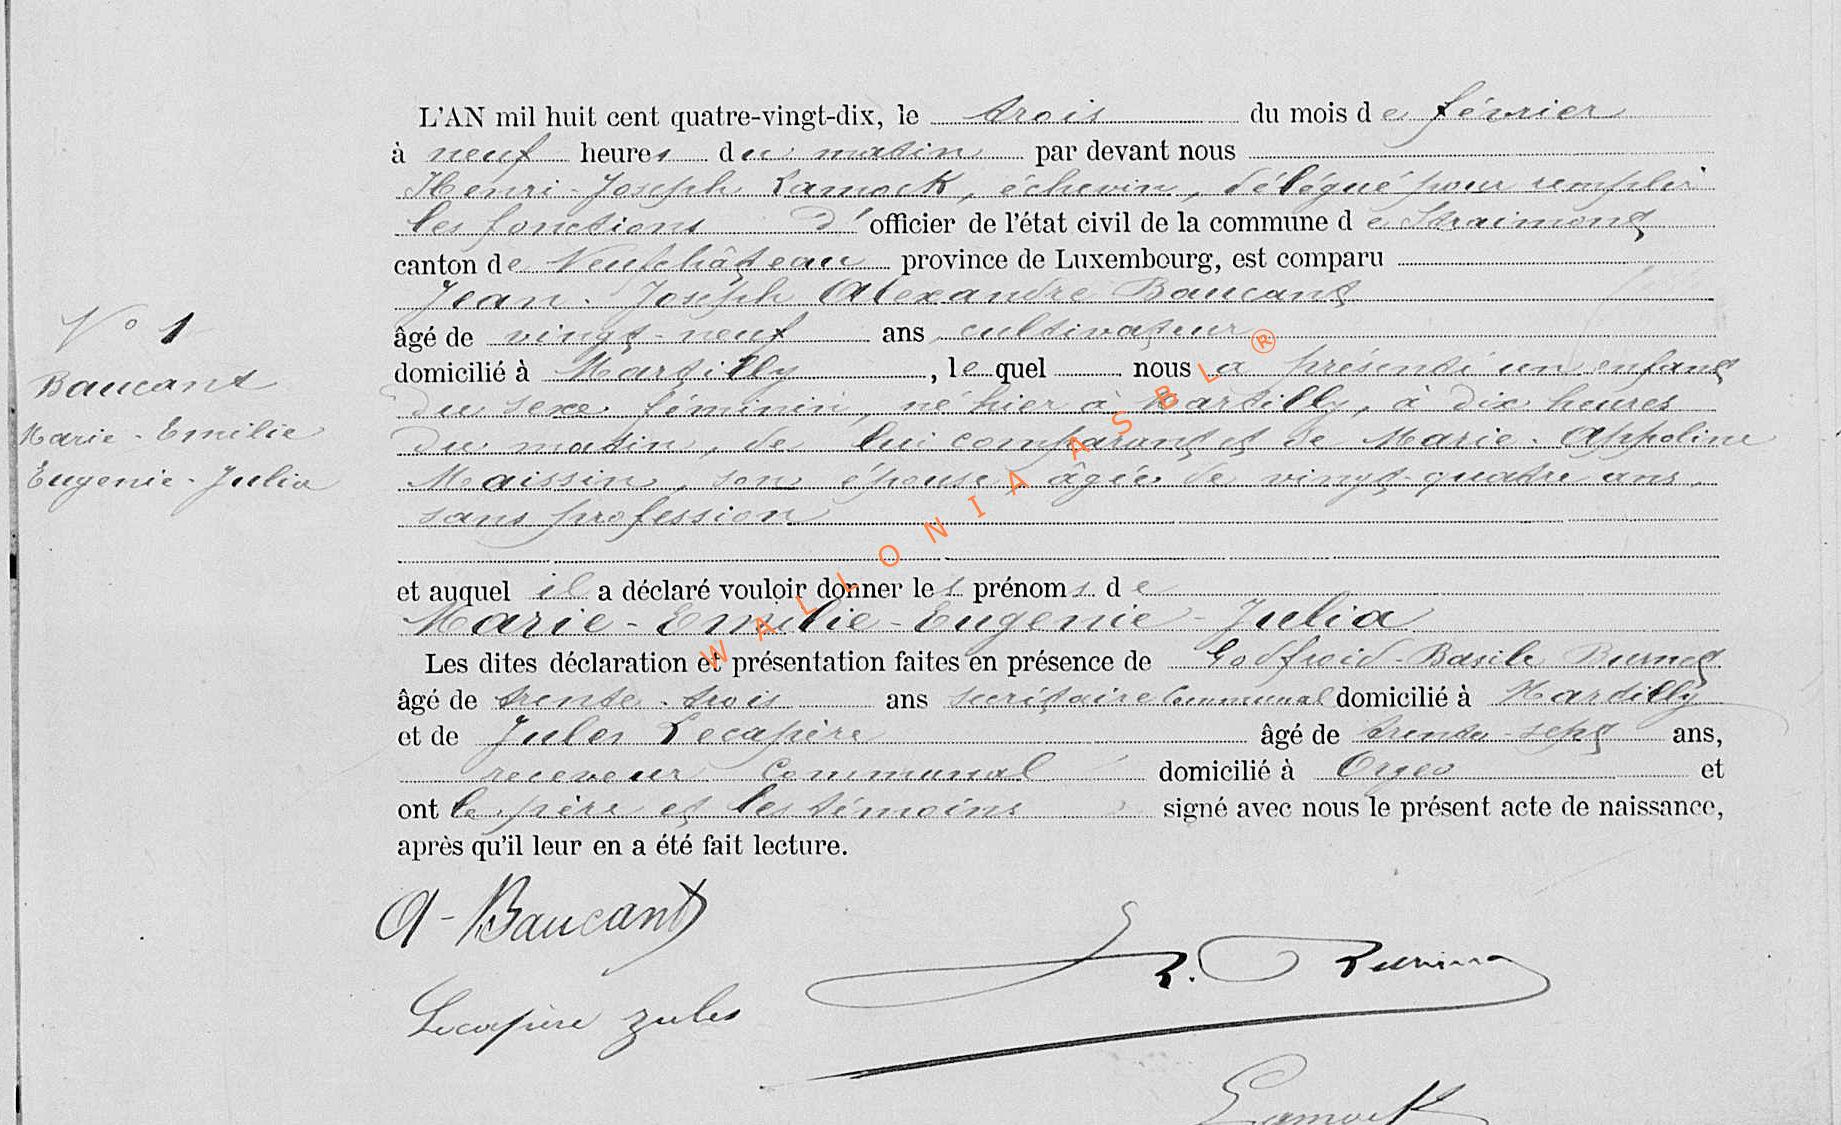 L'AN mil huit cent quatre-vingt-dix, le trois du mois de février
à neuf heures du matin par devant nous
Henri-Joseph Lamock, échevin, délégué pour remplir
les fonctions d'officier de l'état civil de la commune de Straimont
canton de Neufchâteau province de Luxembourg, est comparu
Jean-Joseph Alexandre Baucant
âgé de vingt-neuf ans cultivateur
domicilié à Martilly, lequel nous a présenté un enfant
du sexe féminin, né hier à Martilly, à dix heures
du matin, de lui comparant et de Marie-Appoline
Maissin, son épouse, âgée de vingt-quatre ans,
sans profession
et auquel il a déclaré vouloir donner les prénoms de
Marie-Emilie-Eugenie-Julia
Les dites déclaration et présentation faites en présence de Godfroid-Basile
âgé de trente-trois ans secrétaire communal domicilié à Martilly
et de Jules Lecapère âgé de trente-sept ans,
receveur communal domicilié à Orgeo et
ont le père et les témoins signé avec nous le présent acte de naissance,
après qu'il leur en a été fait lecture.
N° 1
Baucant
Marie-Emilie
Eugenie-Julia
A-Baucant
Lecapère Jules
Lamock
WALLONIA ASBL ®